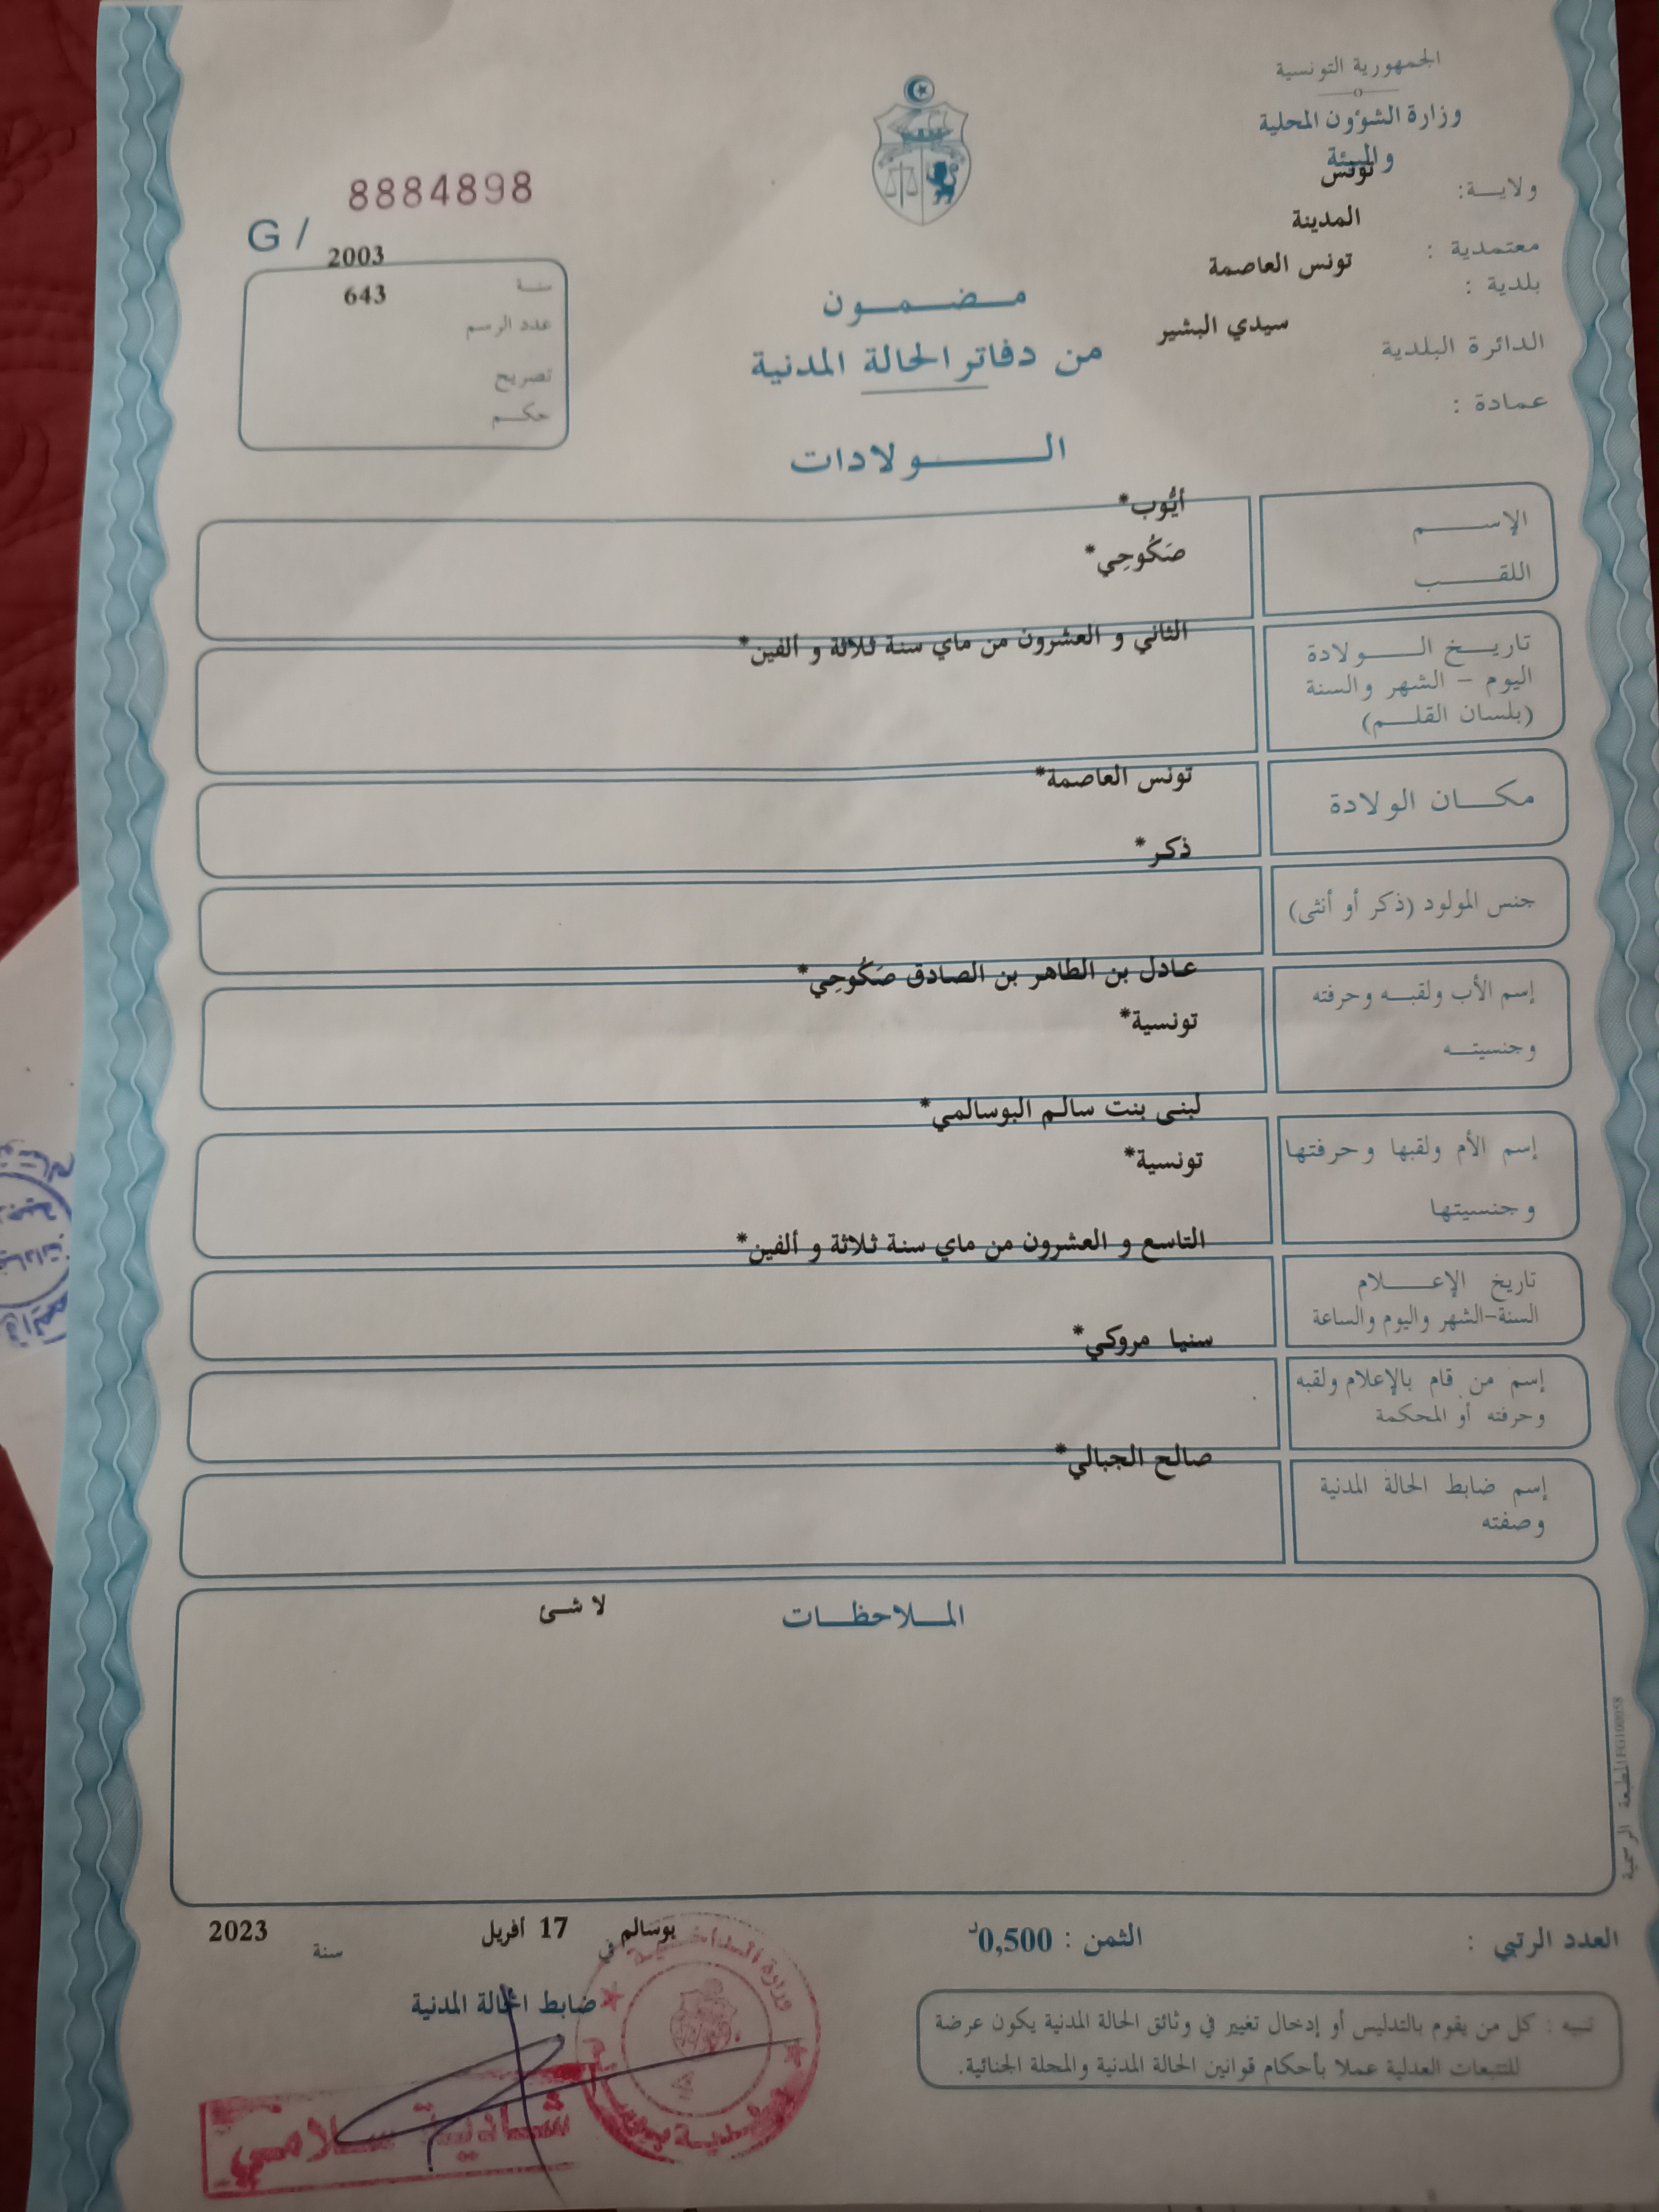 الجمهورية التونسية
وزارة الشؤون المحلية
والبيئة
ولايــة: تونس
معتمدية : المدينة
بلدية : تونس العاصمة
الدائرة البلدية سيدي البشير
عمادة :
8884898
G /
سنة 2003
عدد الرسم 643
تصريح
حكم
مضمون
من دفاتر الحالة المدنية
الولادات
الإسم أيُّوب*
اللقب صَكُوحِي*
تاريخ الولادة الثاني و العشرون من ماي سنة ثلاثة و ألفين*
اليوم – الشهر والسنة
(بلسان القلم)
مكان الولادة تونس العاصمة*
جنس المولود (ذكر أو أنثى) ذكر*
إسم الأب ولقبه وحرفته عادل بن الطاهر بن الصادق صَكُوحِي*
وجنسيته تونسية*
إسم الأم ولقبها وحرفتها لبنى بنت سالم البوسالمي*
وجنسيتها تونسية*
تاريخ الإعلام التاسع و العشرون من ماي سنة ثلاثة و ألفين*
السنة-الشهر واليوم والساعة
إسم من قام بالإعلام ولقبه سنيا مروكي*
وحرفته أو المحكمة
إسم ضابط الحالة المدنية صالح الجبالي*
وصفته
الملاحظات لا شئ
المطبعة الرسمية FG100058
العدد الرتبي :
الثمن : 0,500د
بوسالم في 17 أفريل سنة 2023
ضابط الحالة المدنية
وزارة الداخلية
شادية سلامي
تنبيه : كل من يقوم بالتدليس أو إدخال تغيير في وثائق الحالة المدنية يكون عرضة
للتتبعات العدلية عملا بأحكام قوانين الحالة المدنية والمجلة الجنائية.